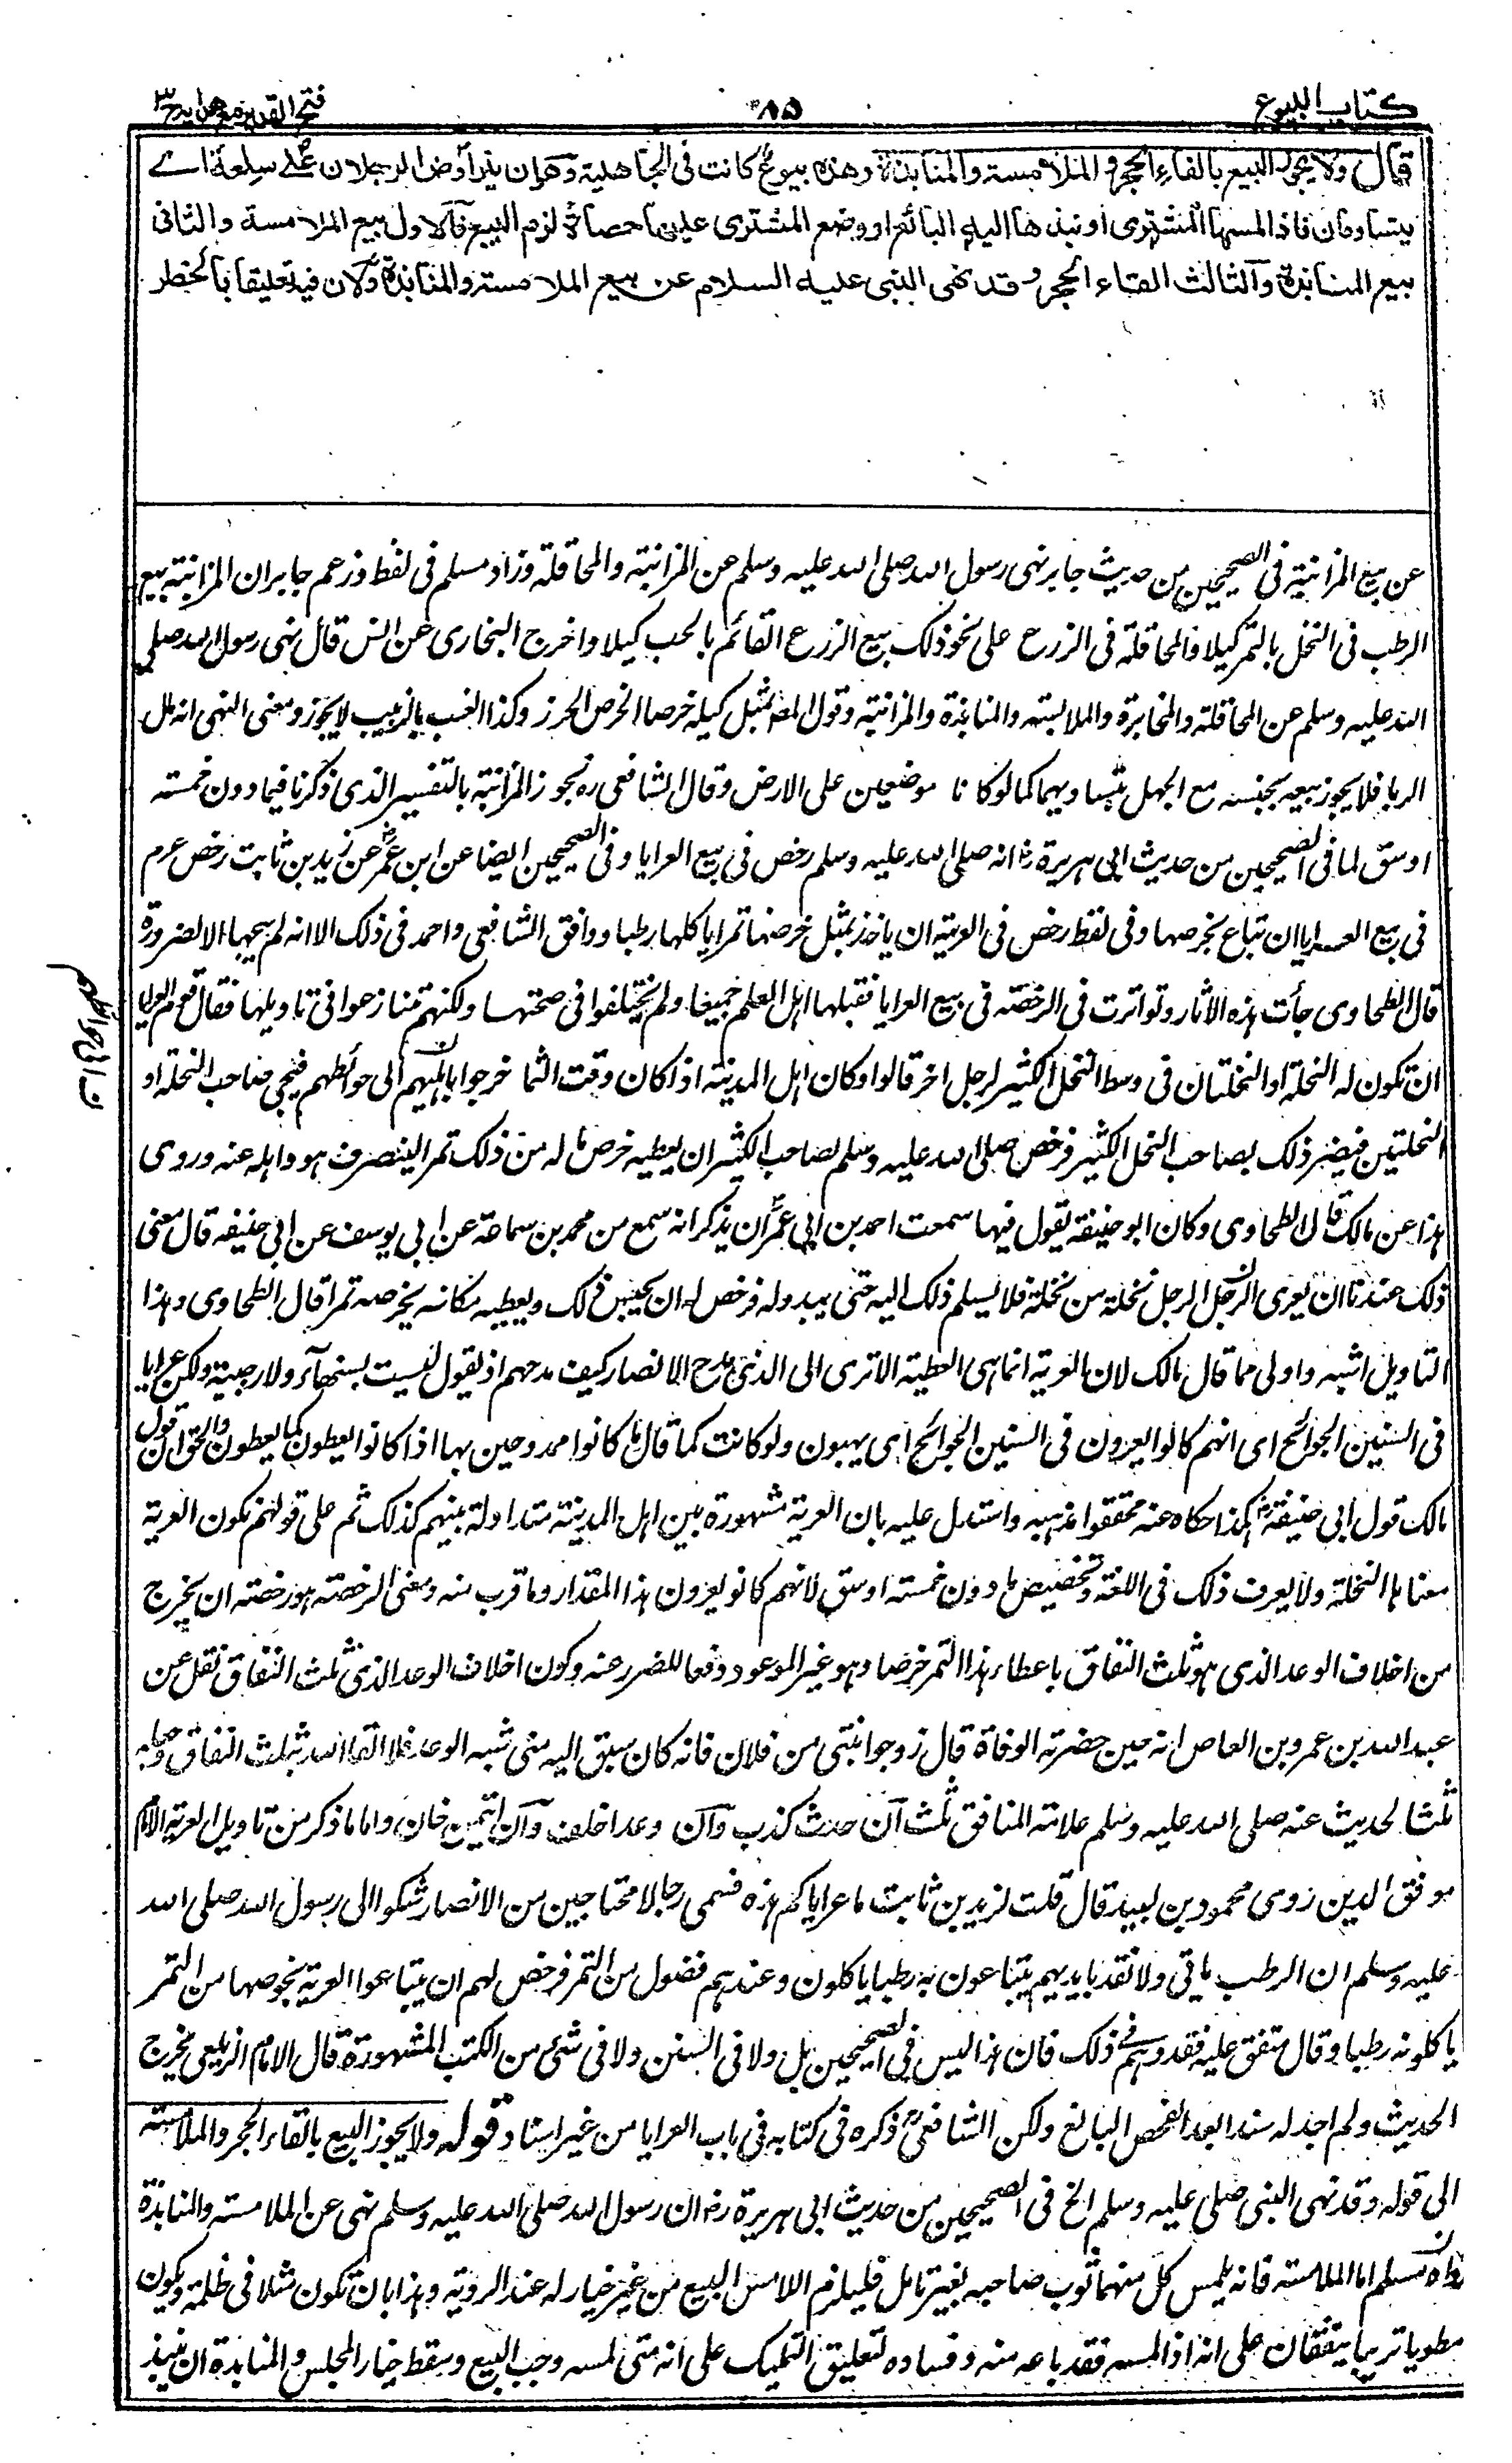 كتاب البيوع
٨٥
فتح القدير مع هدايه ج٣
قال ولا يجوز البيع بالقاء الحجر والملامسة والمنابذة وهذه بيوع كانت فى الجاهلية وهو ان يتراوض الرجلان على سلعة اے
يتساومان فاذا لمسها المشترى او نبذها اليه البائع او وضع المشترى عليها حصاة لزم البيع فالاول بيع الملامسة والثانى
بيع المنابذة والثالث القاء الحجر وقد نهى النبى عليه السلام عن بيع الملامسة والمنابذة ولان فيه تعليقا بالخطر
عن بيع المزابنة فى الصحيحين من حديث جابر نهى رسول الله صلى الله عليه وسلم عن المزابنة والمحاقلة وزاد مسلم فى لفظ وزعم جابر ان المزابنة بيع
الرطب فى النخل بالتمر كيلا والمحاقلة فى الزرع على نحو ذلك بيع الزرع القائم بالحب كيلا واخرج البخارى عن انس قال نهى رسول الله صلى
الله عليه وسلم عن المحاقلة والمخابرة والملامسة والمنابذة والمزابنة وقول المص بمثل كيله خرصا الخرص الحرز وكذا العنب بالزبيب لا يجوز ومعنى النهى انه مال
الربا فلا يجوز بيعه بجنسه مع الجهل بتساويهما كما لو كانا موضوعين على الارض وقال الشافعى ره يجوز المزابنة بالتفسير الذى ذكرنا فيما دون خمسة
اوسق لما فى الصحيحين من حديث ابى هريرة رض انه صلى الله عليه وسلم رخص فى بيع العرايا وفى الصحيحين ايضا عن ابن عمر عن زيد بن ثابت رخص عم م
فى بيع العرايا ان تباع بخرصها وفى لفظ رخص فى العرية ان ياخذ بمثل خرصها تمرا ياكلها رطبا ووافق الشافعى واحمد فى ذلك الا انه لم يبحها الا لضرورة
قال الطحاوى جأت هذه الاثار وتواترت فى الرخصة فى بيع العرايا فقبلها اهل العلم جميعا ولم يختلفوا فى صحتها ولكنهم تنازعوا فى تاويلها فقال قوم العرايا
ان تكون له النخلة او النخلتان فى وسط النخل الكثير لرجل اخر قالوا وكان اهل المدينة اذا كان وقت الثما خرجوا باهليهم الى حوائطهم فيجى صاحب النخلة او
النخلتين فيضر ذلك بصاحب النخل الكثير فرخص صلى الله عليه وسلم لصاحب الكثير ان يعطيه خرص ما له من ذلك تمرا لينصرف هو واهله عنه وروى
هذا عن مالك قال الطحاوى وكان ابو حنيفة يقول فيها سمعت احمد بن ابى عمران يذكر انه سمع من محمد بن سماعة عن ابى يوسف عن ابى حنيفه قال معنى
ذلك عندنا ان يعرى الرجل الرجل نخلة من نخلة فلا يسلم ذلك اليه حتى يبدو له فرخص له ان يحبس ذلك ويعطيه مكانه بخرصه تمرا قال الطحاوى وهذا
التاويل اشبه واولى مما قال مالك لان العرية انما هى العطية الا ترى الى الذى مدح الانصار كيف مدحهم اذ يقول ليست بسنهآء ولا رجبية ولكن عرايا
فى السنين الجوائح اى انهم كانوا يعرون فى السنين الجوائح اى يهبون ولو كانت كما قال ما كانوا ممدوحين بها اذا كانوا يعطون كما يعطون والحق ان قول
مالك قول ابى حنيفة هكذا حكاه عنه محققوا مذهبه واستدل عليه بان العرية مشهورة بين اهل المدينة متداولة بينهم كذلك ثم على قولهم تكون العرية
معناها النخلة ولا يعرف ذلك فى اللغة وتخصيص ما دون خمسة اوسق لانهم كانو يعرون هذا المقدار وما قرب منه ومعنى الرخصة هو رخصة ان يخرج
من اخلاف الوعد الذى هو ثلث النفاق باعطاء هذا التمر خرصا وهو غير الموعود دفعا للضرر عنه وكون اخلاف الوعد الذى ثلث النفاق نقل عن
عبد الله بن عمرو بن العاص انه حين حضرته الوفاة قال زوجوا بنتى من فلان فانه كان سبق اليه منى شبه الوعد فلا القا الله بثلث النفاق وجعله
ثلثا لحديث عنه صلى الله عليه وسلم علامة المنافق ثلث ان حدث كذب وان وعد اخلف وان ائتمن خان واما ما ذكر من تاويل العرية الامام
موفق الدين روى محمود بن لبيد قال قلت لزيد بن ثابت ما عراياكم هذه فسمى رجالا محتاجين من الانصار شكوا الى رسول الله صلى الله
عليه وسلم ان الرطب ياتى ولا نقد بايديهم يتباعون به رطبا ياكلون وعندهم فضول من التمر فرخص لهم ان يتباعوا العرية بخرصها من التمر
ياكلونه رطبا وقال متفق عليه فقد وهم فى ذلك فان هذا ليس فى الصحيحين بل ولا فى السنن ولا فى شئ من الكتب المشهورة قال الامام الزيلعى مخرج
الحديث ولم اجد له سندا بعد الفحص البالغ ولكن الشافعى ذكره فى كتابه فى باب العرايا من غير اسناد قوله ولا يجوز البيع بالقاء الحجر والملامسة
الى قوله وقد نهى النبى صلى عليه وسلم الخ فى الصحيحين من حديث ابى هريرة رض ان رسول الله صلى الله عليه وسلم نهى عن الملامسة والمنابذة
رواه مسلم اما الملامسة فانه يلمس كل منهما ثوب صاحبه بغير تامل فيلزم اللامس البيع من غير خيار له عند الروية وهذا بان تكون مثلا فى ظلمة ويكون
مطويا مرئيا يتفقان على انه اذا لمسه فقد باعه منه وفساده لتعليق التمليك على انه متى لمسه وجب البيع وسقط خيار المجلس والمنابذة ان ينبذ